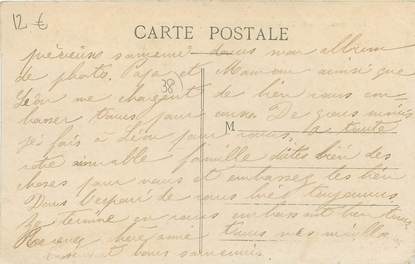 12 €
CARTE POSTALE
précieusement dans mon album
de photo. Papa et Maman ainsi que
Léon me chargent de bien vous em
brasser tous pour eux. De gros mimis
38
M
fais à Léon pour vous. la toute
votre aimable famille dites bien des
choses pour nous et embassez les bien
Dans l'espoir de vous lire toujours
Je termine en vous embrassant bien
Recevez chère amie tous mes meilleurs
et bons souvenirs.